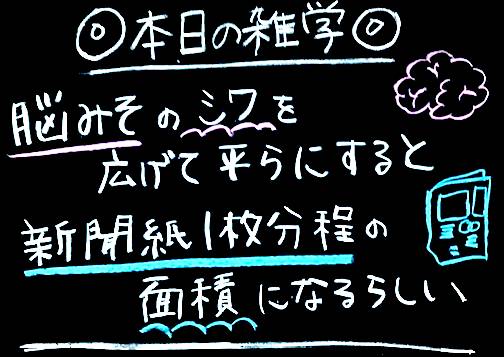 ◎本日の雑学◎
脳みそのシワを
広げて平らにすると
新聞紙1枚分程の
面積になるらしい